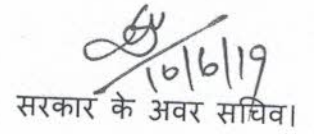 10/6/19
सरकार के अवर सचिव।